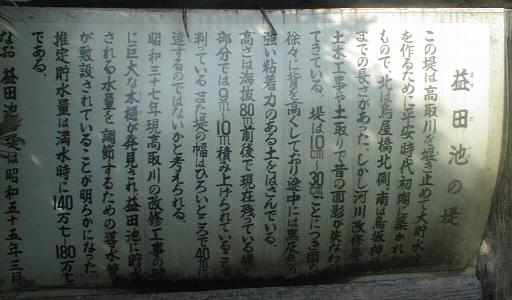 益田池の堤
この堤は高取川を堰き止めて大貯水
を作るために平安時代初期に築かれ
もので、北は鳥屋橋北側、南は鳥坂神
までの長さがあった。しかし河川改修等
土木工事や土取りで昔の面影が失なわ
てきている。堤は10cm~30cmごとにつき固
徐々に背を高くしており途中には黒灰色の
強い粘着力のある土をはさんでいる。
高さは海抜80m前後で現在残っている堤
部分では9m~10m積み上げられているこ
判っている。また堤の幅はひろいところで40mに
達するのではないかと考えられる。
昭和三十七年現高取川の改修工事の時
に巨大な木樋が発見され益田池に貯
される水量を調節するための導水管
が敷設されていることが明らかになった
推定貯水量は満水時に140万t~180万t
である。
なお益田池の堤は昭和五十五年三月